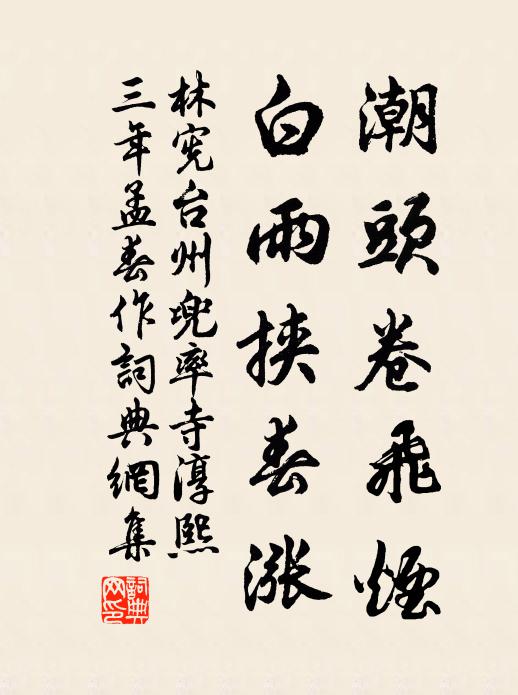 潮頭卷飛煙
白雨挾春漲
林宪台州兜率寺淳熙
三年孟春作詞典網集
詞典網印